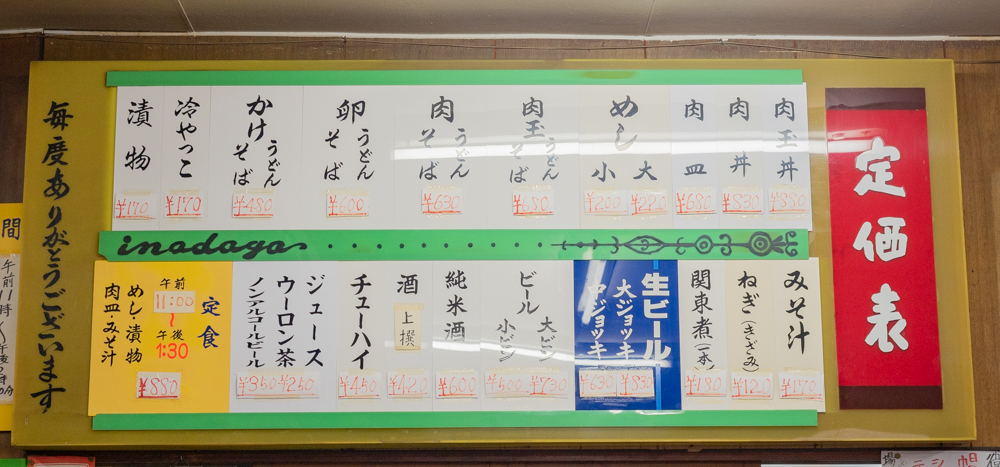 定価表
肉玉丼
肉丼
¥830
肉皿
¥680
めし
大
小
¥200
肉玉
うどん
そば
¥680
肉
うどん
そば
¥630
卵
うどん
そば
¥600
かけ
うどん
そば
¥480
冷やっこ
¥170
漬物
¥170
inadaga
みそ汁
¥170
ねぎ(きざみ)
¥120
関東煮(一本)
¥180
生ビール
大ジョッキ
中ジョッキ
¥830
¥630
ビール
大ビン
小ビン
¥730
¥500
純米酒
¥600
酒
上撰
¥420
チューハイ
¥450
ジュース
ウーロン茶
ノンアルコールビール
¥250
¥350
定食
午前
11:00
~
午後
1:30
めし・漬物
肉皿・みそ汁
¥880
毎度ありがとうございます
間
午前11時